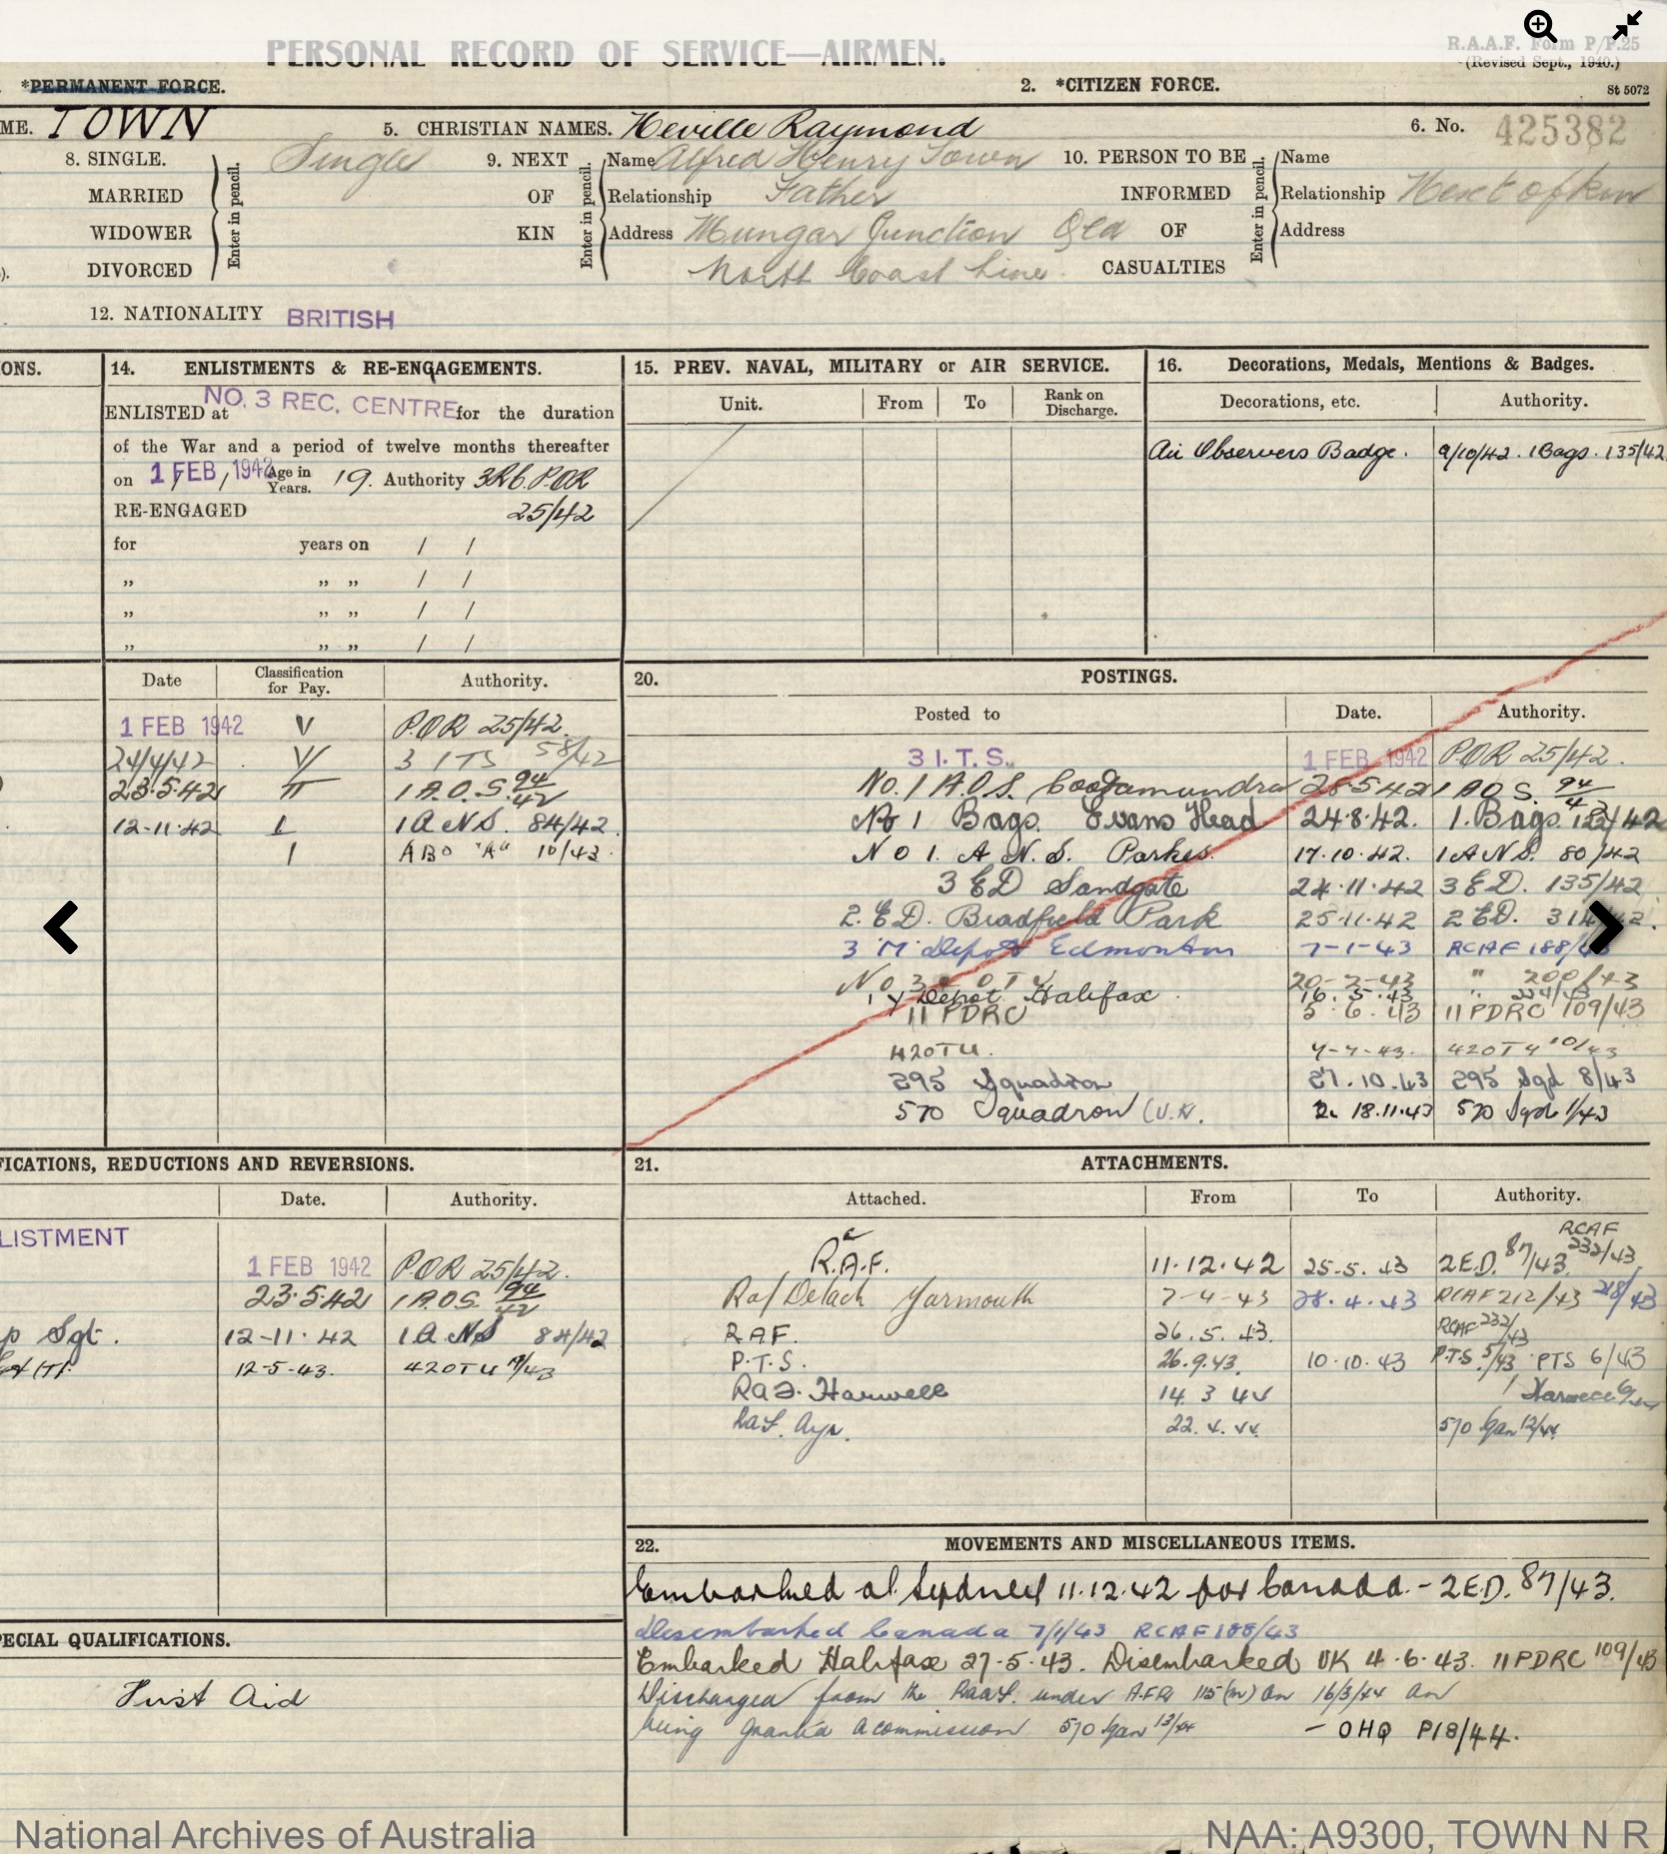 PERSONAL RECORD OF SERVICE—AIRMEN.
R.A.A.F. Form P/P.25
(Revised Sept., 1940.)
*PERMANENT FORCE.
2. *CITIZEN FORCE.
St 5072
ME. TOWN
5. CHRISTIAN NAMES. Neville Raymond
6. No. 425382
8. SINGLE.
MARRIED
WIDOWER
DIVORCED
Enter in pencil.
Single
9. NEXT
OF
KIN
Enter in pencil.
Name Alfred Henry Town
Relationship Father
Address Mungar Junction Qld
North Coast Line.
10. PERSON TO BE
INFORMED
OF
CASUALTIES
Enter in pencil.
Name
Relationship Next of kin
Address
12. NATIONALITY BRITISH
ONS.
14. ENLISTMENTS & RE-ENGAGEMENTS.
ENLISTED at NO. 3 REC. CENTRE for the duration
of the War and a period of twelve months thereafter
on 1 FEB, 1942 Age in Years. 19. Authority 3RC. POR
25/42
RE-ENGAGED
for years on / /
„ „ „ / /
„ „ „ / /
„ „ „ / /
15. PREV. NAVAL, MILITARY or AIR SERVICE.
Unit. From To Rank on Discharge.
16. Decorations, Medals, Mentions & Badges.
Decorations, etc. Authority.
Air Observers Badge. 9/10/42. 1 Bags. 135/42
Date Classification for Pay. Authority.
1 FEB 1942 V POR 25/42.
24/4/42 V 3 ITS 58/42
23.5.42 II 1 A.O.S. 94/42
12-11.42 I 1 A.N.S. 84/42.
1 ABO "A" 10/43.
20. POSTINGS.
Posted to Date. Authority.
3 I.T.S. 1 FEB 1942 POR 25/42.
No. 1 A.O.S. Cootamundra 23.5.42 1 AOS. 94/42
No 1 Bags. Evans Head 24.8.42. 1. Bags.
No 1. A.N.S. Parkes. 17.10.42. 1 ANS. 80/42
3 ED Sandgate 24.11.42 3 ED. 135/42
2. E.D. Bradfield Park 25.11.42 2 ED.
3 M Depot Edmonton 7-1-43 RCAF 188/
No 3 OTU 20-2-43 " 200/43
1 Y Depot Halifax. 16.5.43 "
11 PDRC 5.6.43 11 PDRC 109/43
42 OTU. 42 OTU 10/43
295 Squadron 27.10.43 295 Sqd 8/43
570 Squadron (U.K. 18.11.43 570 Sqdn 1/43
FICATIONS, REDUCTIONS AND REVERSIONS.
Date. Authority.
LISTMENT
1 FEB 1942 POR 25/42.
23.5.42 1 AOS. 94/42
p Sgt. 12-11.42 1 A.N.S 84/42
12-5-43. 42 OTU
21. ATTACHMENTS.
Attached. From To Authority.
R.A.F. 11.12.42 25.5.43 2 E.D. 87/43. RCAF 232/43
Raf Detach Yarmouth 7-4-43 28.4.43 RCAF 212/43 218/43
R.A.F. 26.5.43. RCAF 232/43
P.T.S. 26.9.43. 10.10.43 P.T.S. 5/43 PTS 6/43
RAF. Harwell 14.3.44 Harwell
RAF. Ayr. 22.4.44. 570 Sqn 12/44
22. MOVEMENTS AND MISCELLANEOUS ITEMS.
Embarked at Sydney 11.12.42 for Canada. - 2 E.D. 87/43.
Disembarked Canada 7/1/43 RCAF 188/43
Embarked Halifax 27-5-43. Disembarked UK 4.6.43. 11 PDRC 109/43
Discharged from the RAAF. under A.F.R. 115(m) on 16/3/44 on
being granted a commission 570 Sqn 13/44 - OHQ P18/44.
PECIAL QUALIFICATIONS.
First Aid
National Archives of Australia
NAA: A9300, TOWN N R